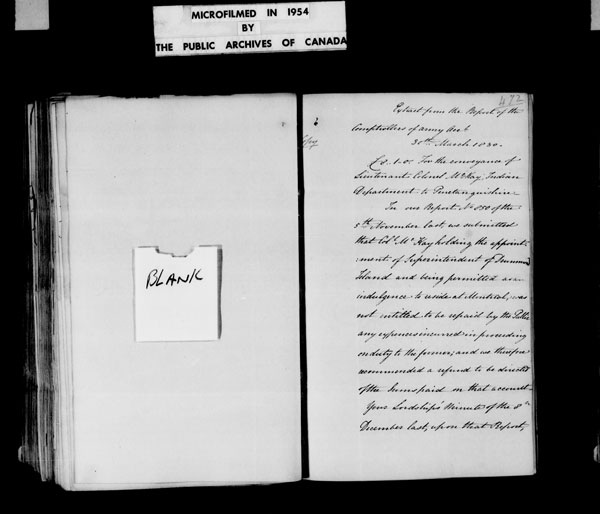 MICROFILMED IN 1954
BY
THE PUBLIC ARCHIVES OF CANADA
BLANK
472
Copy
Extract from the Report of the
Comptrollers of army Accts
30th March 1830.
For the conveyance of
Lieutenant Colonel McKay, Indian
Department to Penetanguishine
In our Report No 850 of the
5th November last, we submitted
that Col. McKay holding the appoint-
ment of Superintendent of Drummond
Island and being permitted as an
indulgence to reside at Montreal, was
not entitled to be repaid by the Public
any expences incurred in proceeding
on duty to the former; and we therefore
recommended a refund to be directed
of the sums paid on that account.
Your Lordships Minute of the 8th
December last, upon that Report,